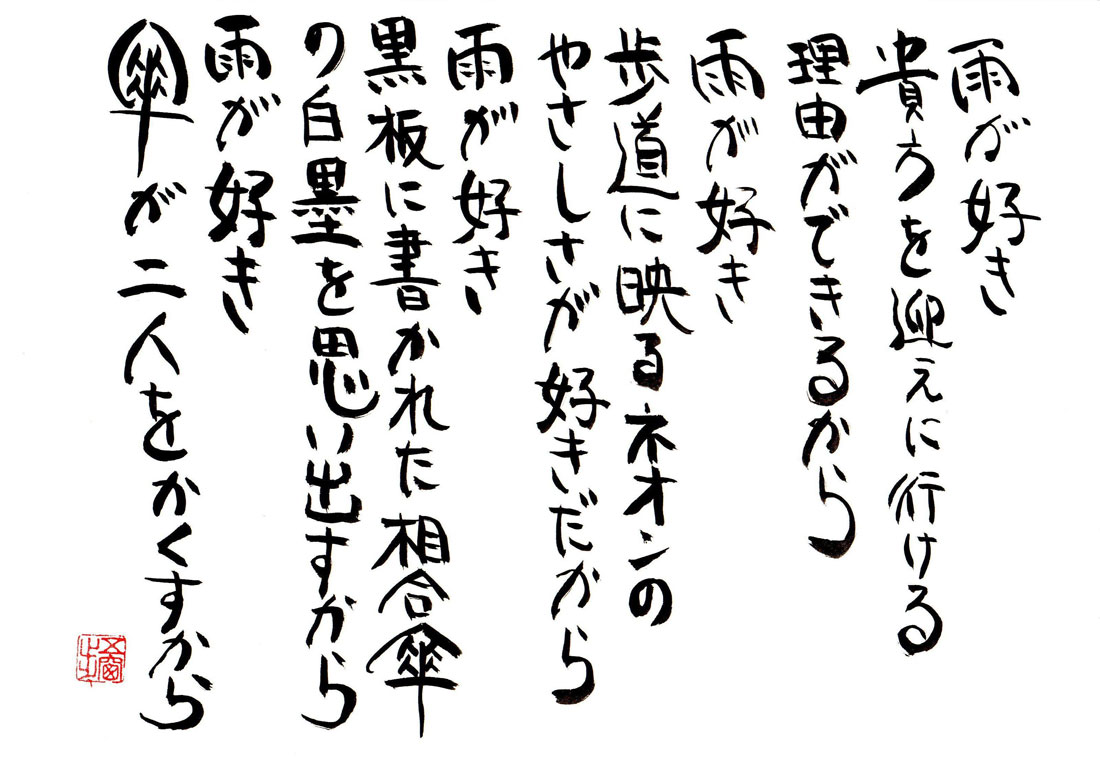 雨が好き
貴方を迎えに行ける
理由ができるから
雨が好き
歩道に映るネオンの
やさしさが好きだから
雨が好き
黒板に書かれた相合傘
の白墨を思い出すから
雨が好き
傘が二人をかくすから